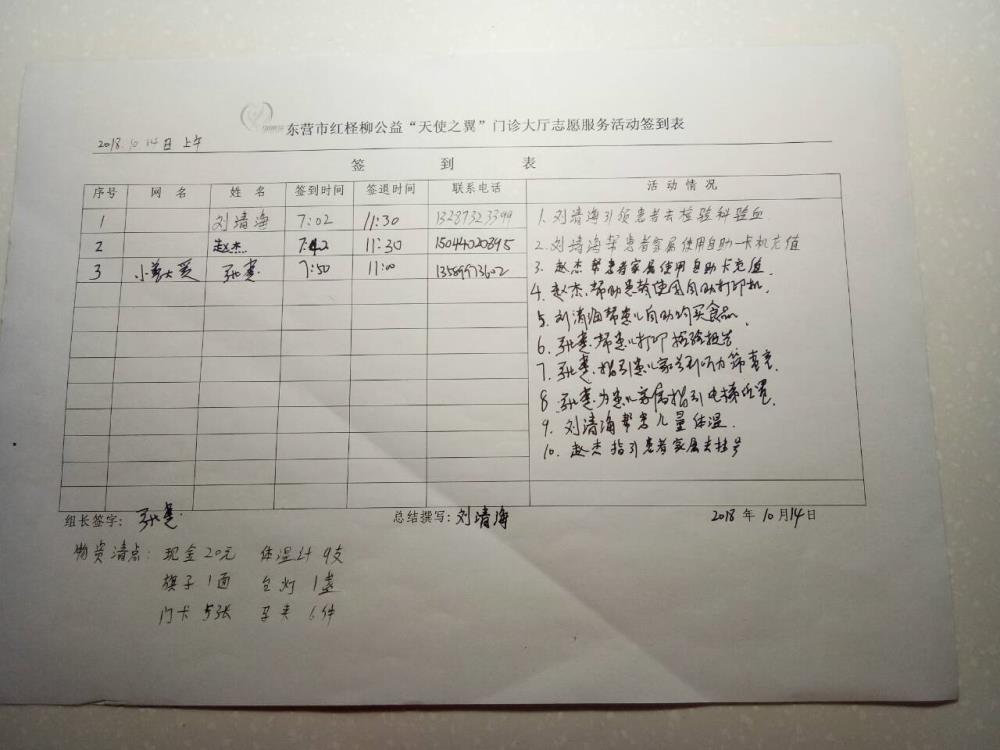 东营市红柽柳公益“天使之翼”门诊大厅志愿服务活动签到表
2018.10.14日上午
签 到 表
序号 网 名 姓 名 签到时间 签退时间 联系电话 活 动 情 况
1 刘清海 7:02 11:30 13287323399
2 赵杰 7:42 11:30 15044020395
3 7:50 11:00 13589973602
1. 刘清海引领患者去检验科验血
2. 刘清海帮患者家属使用自助一卡机充值
3. 赵杰帮患者家属使用自助卡充值.
4. 赵杰.帮助患者使用自助打印机.
5. 刘清海帮患儿自助购买食品.
6. 张慧.帮患儿打印检验报告
7. 张慧.指引患儿家长到听力筛查室.
8 张慧.为患儿家属指引电梯位置.
9. 刘清海帮患儿量体温.
10. 赵杰指引患者家属去挂号
组长签字: 张慧 总结撰写: 刘清海 2018 年 10 月 14 日
物资清点: 现金20元 体温计 9支
旗子 1面 台灯 1盏
门卡 5张 马夹 6件